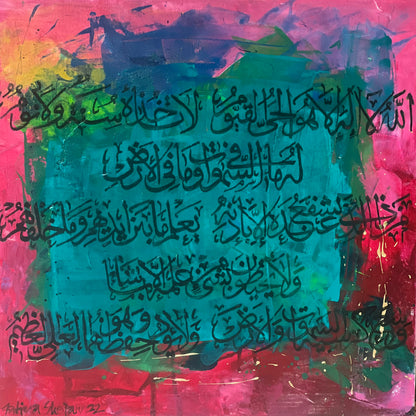 الله لا إله إلا هو الحي القيوم لا تأخذه سنة ولا نوم
له ما في السموات وما في الأرض
من ذا الذي يشفع عنده إلا بإذنه يعلم ما بين أيديهم وما خلفهم
ولا يحيطون بشيء من علمه إلا بما شاء
وسع كرسيه السموات والأرض ولا يؤده حفظهما وهو العلي العظيم